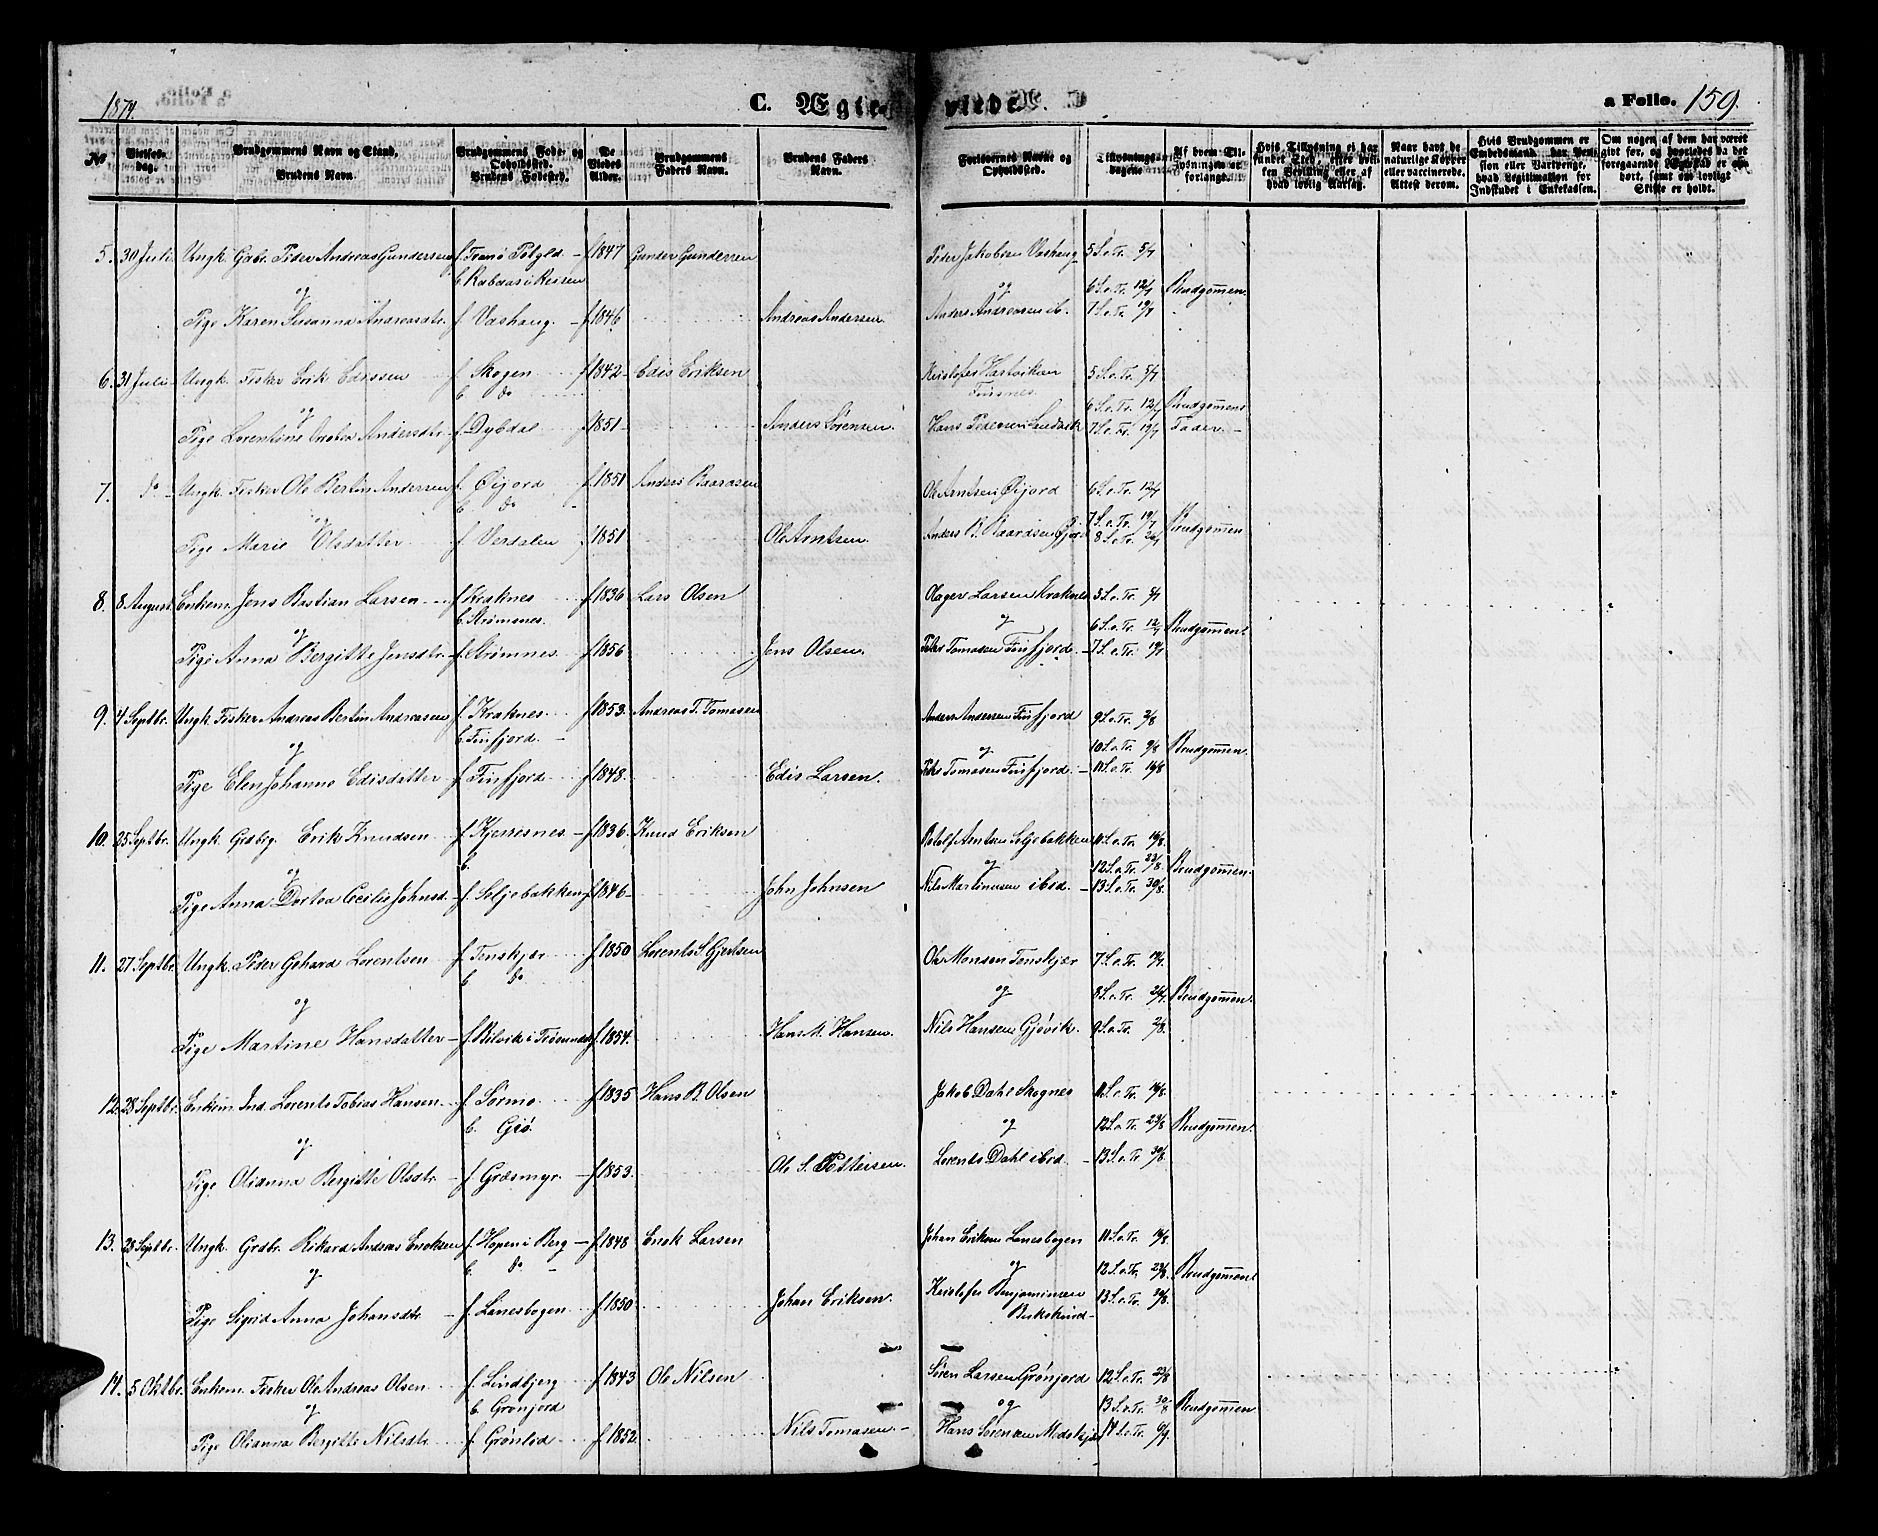 1874.
C. Ægteviede.
a Folio. 159.
No
Vielses-dag.
Brudgommens Navn og Stand,
Brudens Navn.
Brudgommens Føde- og Opholdssted.
Brudens Fødested.
De Viedes Alder.
Brudgommens Faders Navn.
Brudens Faders Navn.
Forlovernes Navne og Opholdssted.
Tillysnings-dagene
Af hvem Tillysningen er forlangt.
Hvis Tillysning ei har fundet Sted, efter hvilken Bevilling eller af hvad lovlig Aarsag.
Naar havt de naturlige Kopper eller vaccinerede. Attest derom.
Hvis Brudgommen er Embedsmand, har Pension eller Vartpenge, hvad Legitimation for Indskudet i Enkekassen.
Om nogen af dem har været givt før, og hvorledes da det foregaaende Egteskab er ophørt, samt om lovligt Skifte er holdt.
5. 30 Juli Ungk. Gabr. Peder Andreas Gundersen f. Tranø f. 1847 Gunder Gundersen Peder Jakobsen Vashaug 5 S. e. Tr. 5/7
og og 6 S. e. Tr. 12/7 Brudgommen.
Pige Karen Susanna Andreasdtr. f. Vashaug f. 1846 Andreas Andersen. Anders Andreasen ib. 7 S. e. Tr. 19/7
6. 31 Juli Ungk. Fisker Erik Edissen f. Skogen f. 1842 Edis Eriksen Kristofer Hartviksen 5 S. e. Tr. 5/7
b. do Finsnes.
og 6 S. e. Tr. 12/7 Brudgommens
Pige Lorentine Andersdtr. f. Dybdal f. 1851 Anders Sørensen. Hans Pedersen Sandvik 7 S. e. Tr. 19/7 Fader.
7. do Ungk. Fisker Ole Bertin Andersen f. Øijord f. 1851 Anders Baardsen Ole Arntsen Øijord 6 S. e. Tr. 12/7
og b. do 7 S. e. Tr. 19/7 Brudgommen
Pige Marie Olsdatter f. Verdalen f. 1851 Ole Arntsen. Anders B. Baardsen Øijord 8 S. e. Tr. 26/7
8. 8 August Enkem. Jens Bastian Larsen f. Kraknes f. 1836 Lars Olsen Olager Larsen Kraknes 5 S. e. Tr. 5/7
og b. Strømsnes. og 6 S. e. Tr. 12/7 Brudgommen
Pige Anna Bergitte Jensdtr. f. Strømnes f. 1856 Jens Olsen. Peter Tomasen Finfjord 7 S. e. Tr. 19/7
9. 4 Septbr. Ungk. Fisker Andreas Bertin Andreasen f. Kraknes. f. 1853. Andreas T. Tomasen Anders Andersen Finfjord 9 S. e. Tr. 2/8
og b. Finfjord. og 10 S. e. Tr. 9/8 Brudgommen.
Pige Elen Johanna Edisdatter f. Finfjord f. 1848. Edis Larsen. Peter Tomasen Finfjord. 11 S. e. Tr. 16/8
10. 25 Septbr. Ungk. Grdbrg. Erik Knudsen f. Kjerresnes f. 1836. Knud Eriksen Rololf Arntsen Seljebakken 11 S. e. Tr. 16/8.
og b. og 12 S. e. Tr. 23/8. Brudgommen.
Pige Anna Dortea Cecilie Johnsd. f. Seljebakken f. 1846 John Johnsen Nils Martinusen ibid. 13 S. e. Tr. 30/8.
11. 27 Septbr. Ungk. Peder Gehard Lorentsen f. Tenskjær f. 1850 Lorents S. Gjertsen Ole Monsen Tenskjær 7 S. e. Tr. 19/7.
og b. do og 8 S. e. Tr. 26/7. Brudgommen.
Pige Martine Hansdatter f. Bilvik i Tromsundet f. 1854. Hans M. Hansen. Nils Hansen Gjøvik. 9 S. e. Tr. 2/8.
12. 28 Septbr. Enkem. Ind. Lorents Tobias Hansen f. Sørmo f. 1835 Hans B. Olsen Jakob Dahl Skognes 11 S. e. Tr. 16/8.
b. Gisø. og 12 S. e. Tr. 23/8 Brudgommen.
og
Pige Olianna Bergitte Olsdtr. f. Græsmyr. f. 1853. Ole S. Pettersen. Lorents Dahl ibid 13 S. e. Tr. 30/8.
13. 28 Septbr. Ungk. Grdbr. Rikard Andreas Enoksen f. Hopen i Berg f. 1848 Enok Larsen Johan Eriksen Lanesbogen 11 S. e. Tr. 16/8.
og b. do og 12 S. e. Tr. 23/8. Brudgommen
Pige Sigrid Anna Johansdtr f. Lanesbogen f. 1850 Johan Eriksen. Kristofer Benjaminsen 13 S. e. Tr. 30/8.
Bukskind
14. 5 Oktbr. Enkem. Fisker Ole Andreas Olsen f. Lindbjerg f. 1843 Ole Nilsen Søren Larsen Grønjord 12 S. e. Tr. 23/8
og b. Grønjord og 13 S. e. Tr. 30/8 Brudgommen
Pige Olianna Bergitte Nilsdtr. f. Grønlid f. 1852. Nils Tomasen. Hans Sørensen Medskjær 14 S. e. Tr. 6/9.